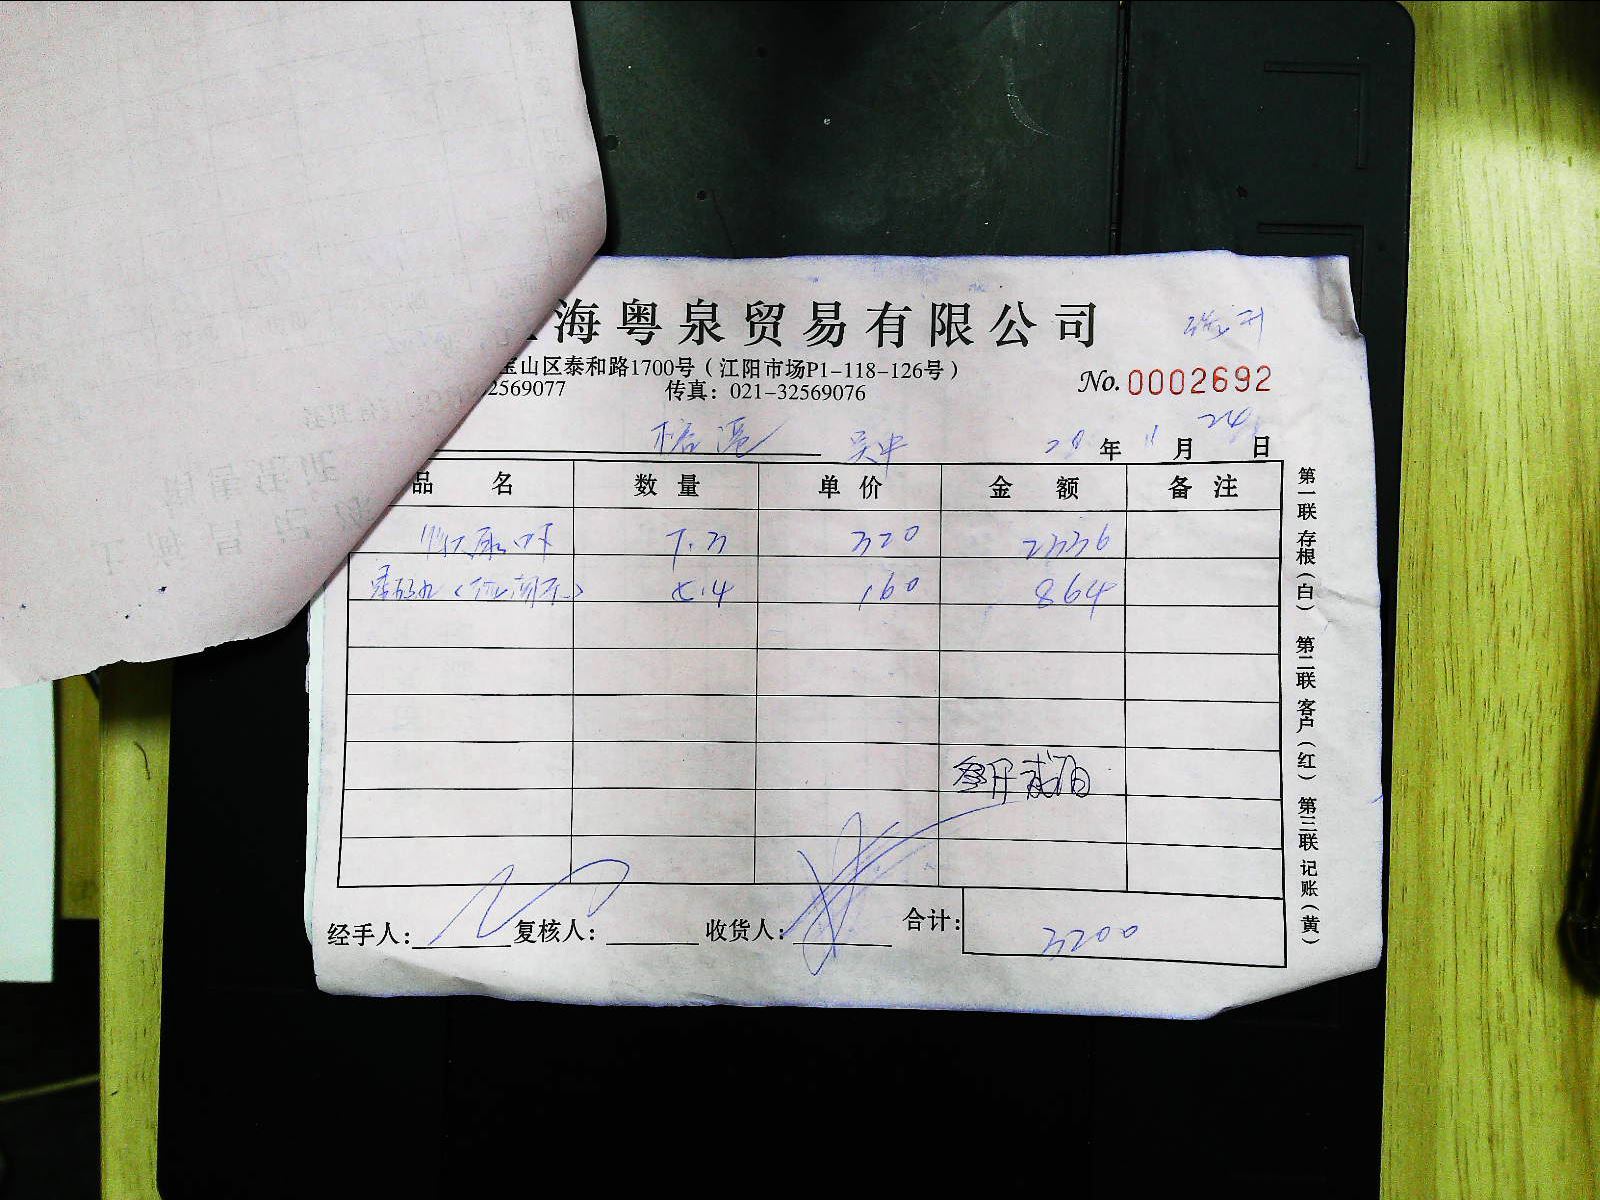 海粤泉贸易有限公司
宝山区泰和路1700号（江阳市场P1-118-126号）
2569077 传真：021-32569076
No. 0002692
20 年 11 月 24 日
品 名 数 量 单 价 金 额 备 注
7.3 320 2336
5.4 160 864
叁仟贰佰
经手人： 复核人： 收货人： 合计： 3200
第一联 存根（白） 第二联 客户（红） 第三联 记账（黄）